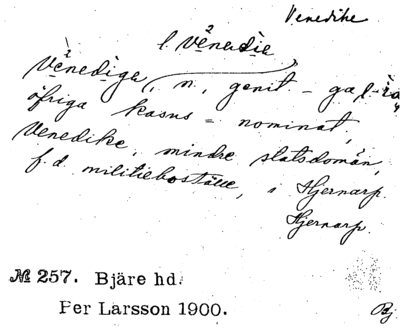 Venedike
l. Venedie
Venediga, n., genit – ga l. -ia
öfriga kasus = nominat,
Venedike, mindre statsdomän,
f.d. militieboställe, i Hjernarp
Hjernarp
№ 257. Bjäre hd.
Per Larsson 1900.
Bj.